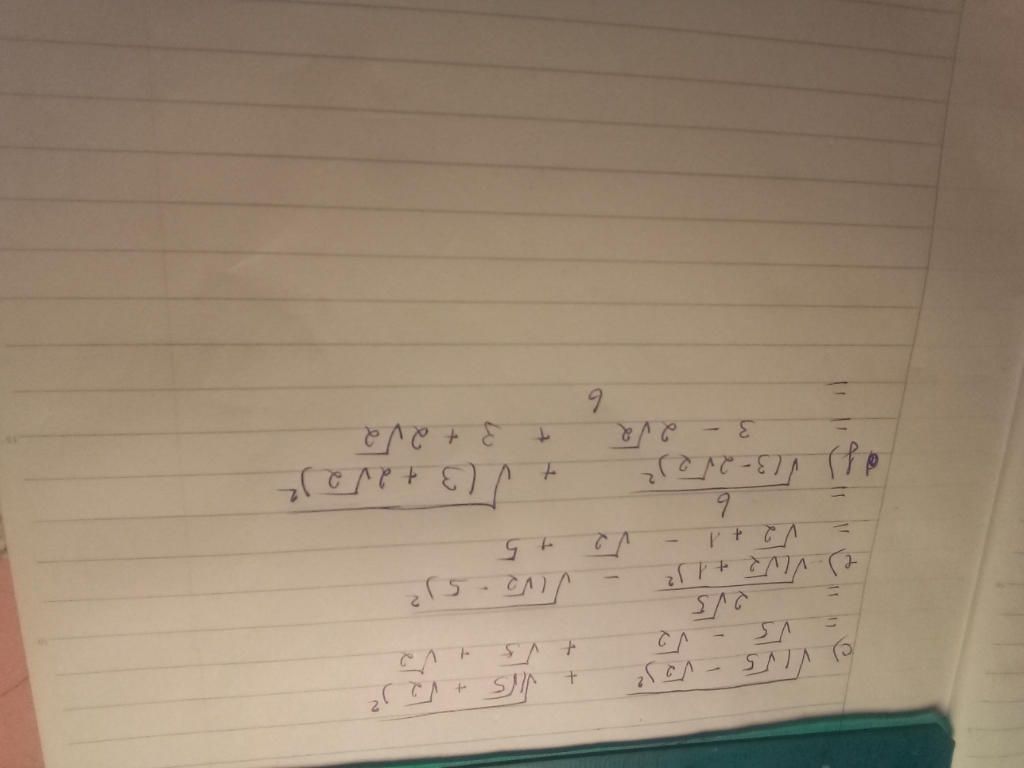 c) √(√5 - √2)² + √(√5 + √2)²
= √5 - √2 + √5 + √2
= 2√5
e) √(√2 + 1)² - √(√2 - 5)²
= √2 + 1 - √2 + 5
= 6
f) √(3 - 2√2)² + √(3 + 2√2)²
= 3 - 2√2 + 3 + 2√2
= 6